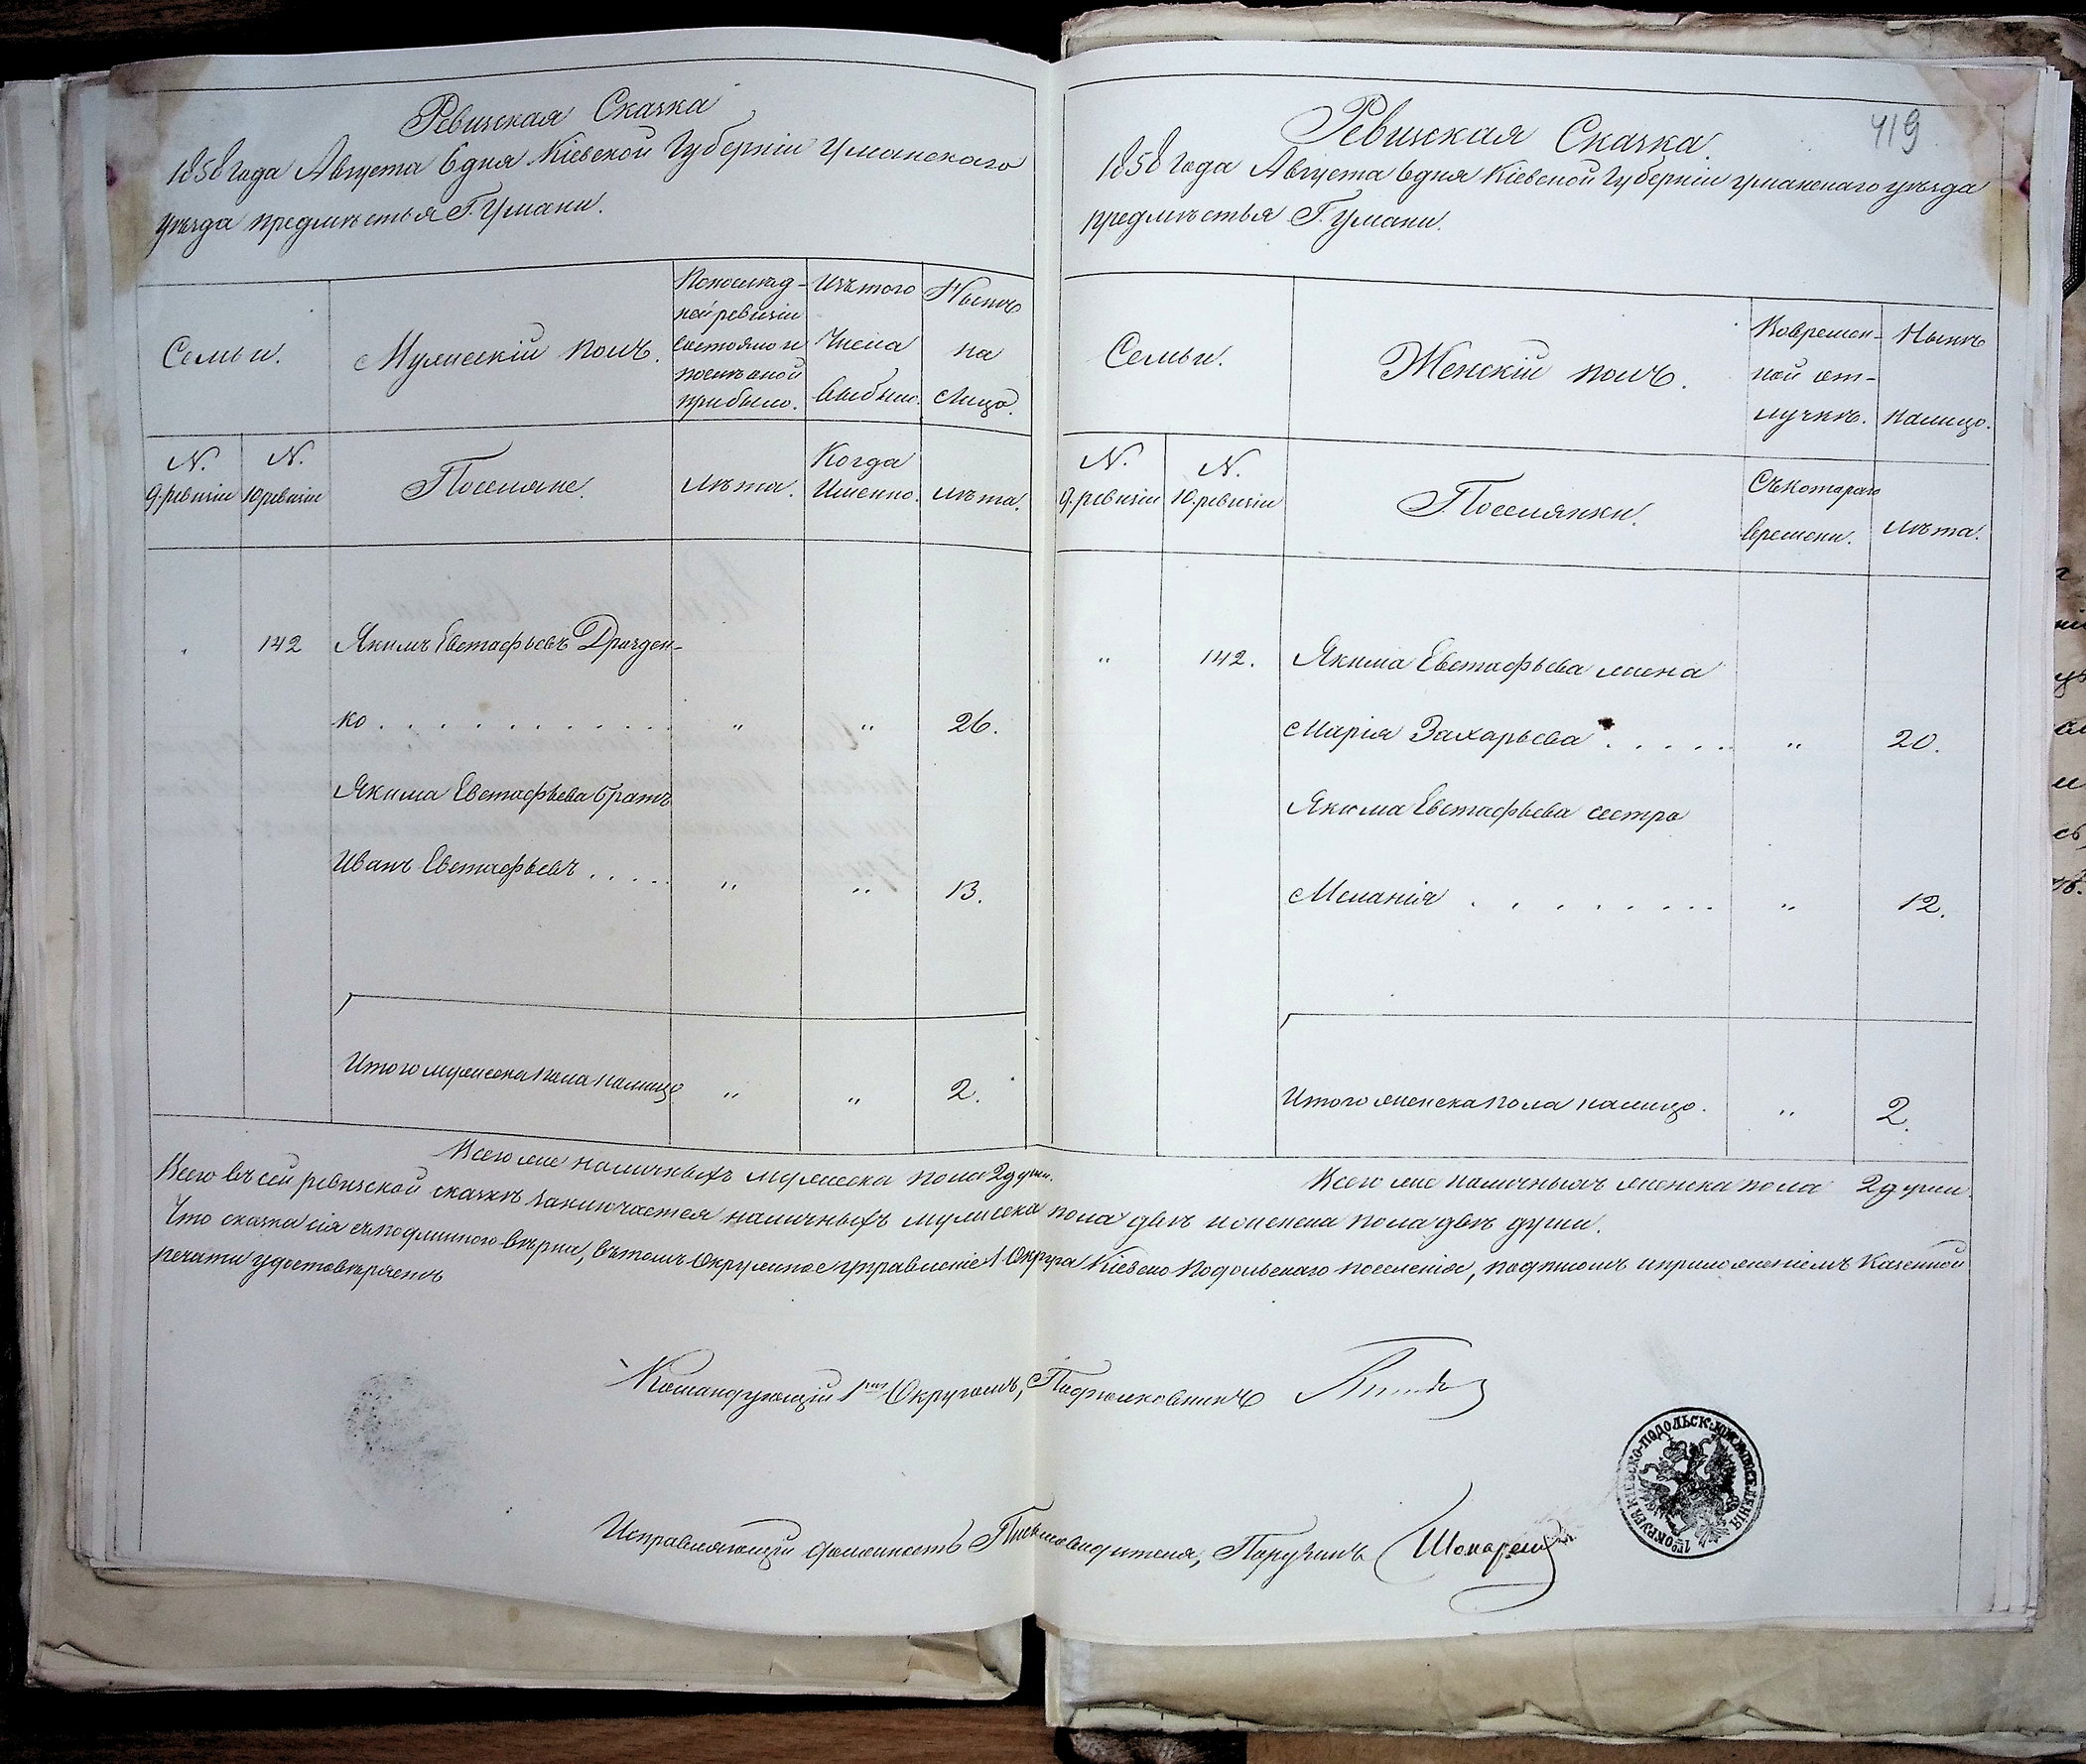 Ревизская Сказка
1858 года Августа 6 дня Кіевской Губерніи Уманскаго
уѣзда предмѣстья Г. Умани.
Семьи.
Мужескій полъ.
По послѣд-
ней ревизіи
состояло и
послѣ оной
прибыло.
Изъ того
Числа
выбыло.
Нынѣ
на
Лицо.
N.
9. ревизіи
N.
10 ревизіи
Поселяне.
Лѣта.
Когда
Именно.
лѣта.
142
Якимъ Евстафьевъ Дрозден-
ко . . . . . . . . . . . " " 26.
Якима Евстафьева братъ
Иванъ Евстафьевъ . . . . . " " 13.
Итого мужеска пола налицо " " 2.
Всего же наличныхъ мужеска пола 2 души.
419
Ревизская Сказка
1858 года Августа 6 дня Кіевской Губерніи Уманскаго уѣзда
предмѣстья Г. Умани.
Семьи.
Женскій полъ.
Во времен-
ной от-
лучкѣ.
Нынѣ
налицо.
N.
9. ревизіи
N.
10. ревизіи
Поселянки.
Съ котораго
времени.
Лѣта.
" 142. Якима Евстафьева жена
Марія Захарьева . . . . . " 20.
Якима Евстафьева сестра
Меланія . . . . . . . . " 12.
Итого женска пола налицо. " 2.
Всего же наличныхъ женска пола 2 души.
Всего въ сей ревизской сказкѣ заключается наличныхъ мужеска пола двѣ и женска пола двѣ души.
Что сказка сія съ подлинною вѣрна, въ томъ Окружное управленіе 1 Округа Кіевско Подольскаго поселенія, подписомъ и приложеніемъ Казенной
печати удостовѣряетъ
Командующій 1мъ Округомъ, Подполковникъ
Исправляющій должность Письмоводителя, Поручикъ
1го ОКРУГА КІЕВСКО-ПОДОЛЬСК. ЮЖ. ПОСЕЛЕНІЯ